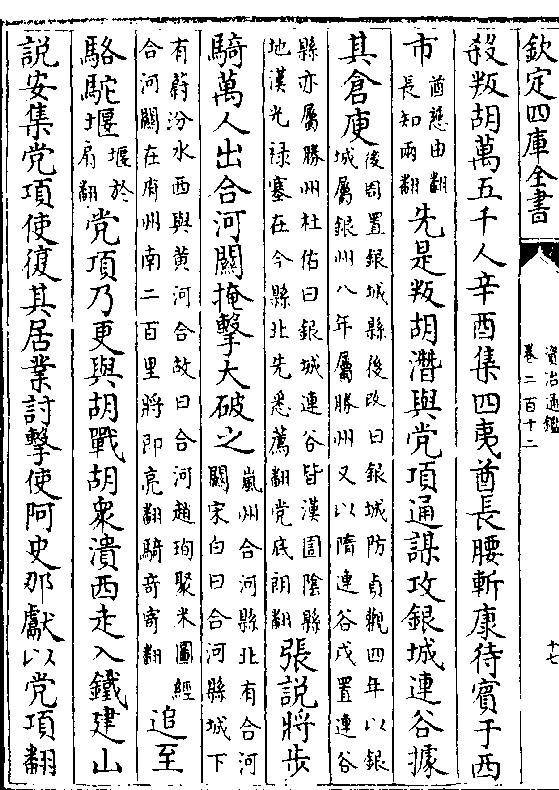 欽定四庫全書
資治通鑑
卷二百十二
十七
殺叛胡萬五千人辛酉集四夷酋長腰斬康待賓于西
市酋慈由翻
長知兩翻先是叛胡潛與党項通謀攻銀城連谷據
其倉庾後周置銀城縣後改曰銀城防貞觀四年以銀
城屬銀州八年屬勝州又以隋連谷戍置連谷
縣亦屬勝州杜佑曰銀城連谷皆漢圁陰縣
地漢光禄塞在今縣北先悉薦翻党底朗翻張說將步
騎萬人出合河關掩擊大破之嵐州合河縣北有合河
關宋白曰合河縣城下
有蔚汾水西與黄河合故曰合河趙珣聚米圖經
合河關在府州南二百里將即亮翻騎奇寄翻追至
駱駝堰堰於
扇翻党項乃更與胡戰胡衆潰西走入鐵建山
說安集党項使復其居業討擊使阿史那獻以党項翻